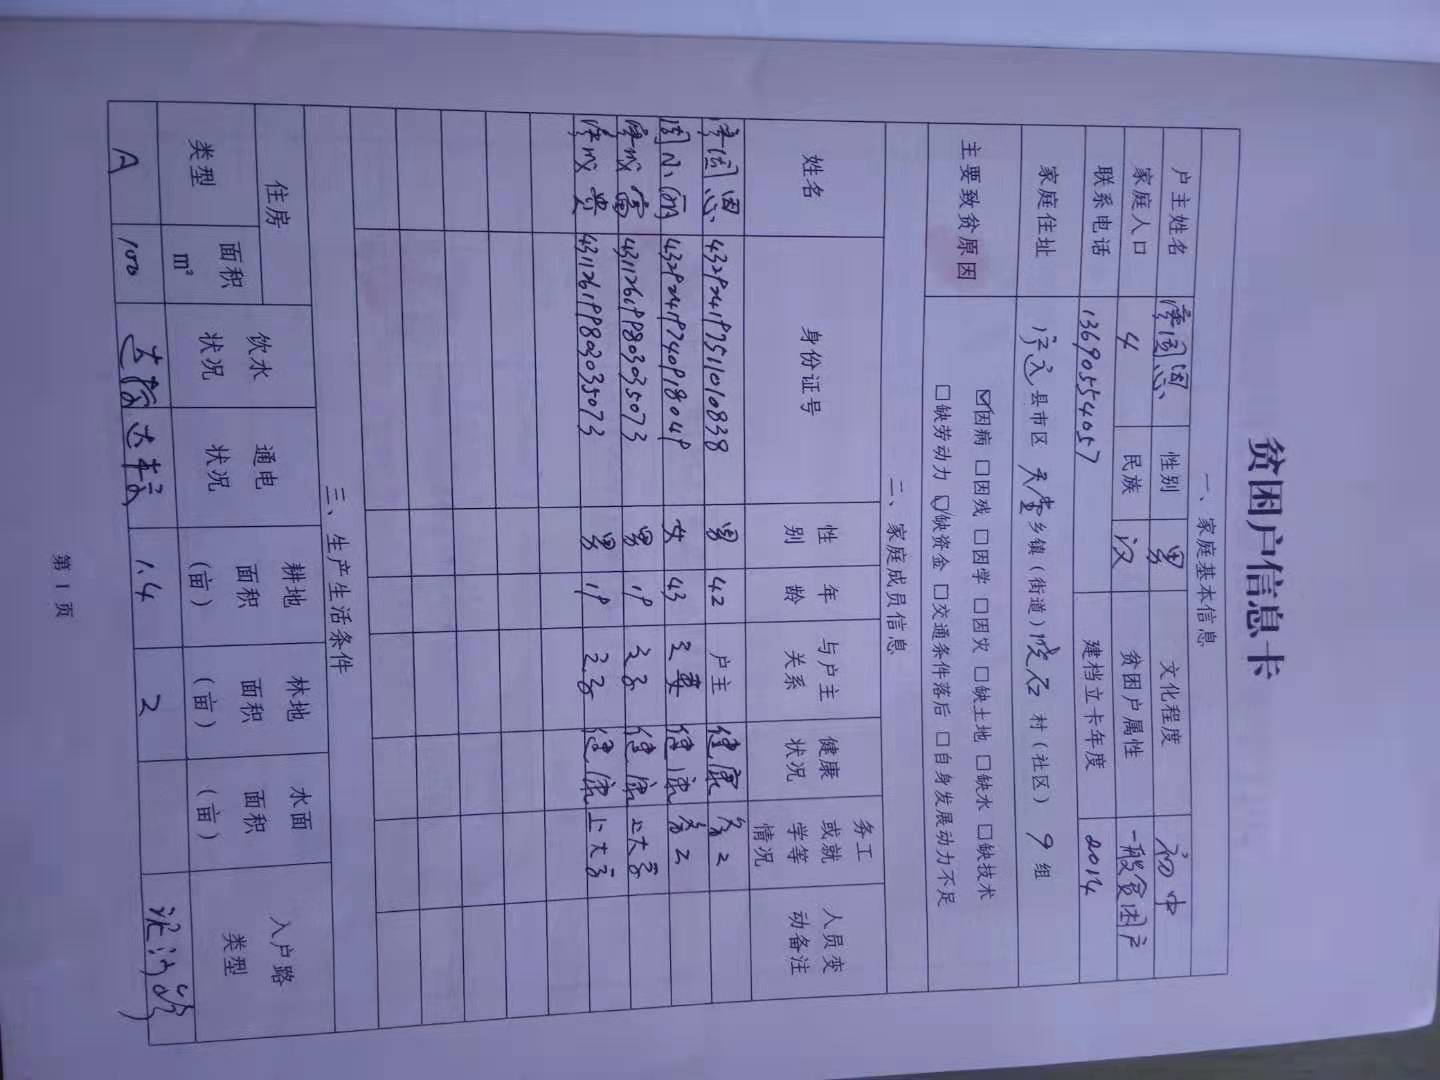 贫困户信息卡
一、家庭基本信息
户主姓名 性别 男 文化程度 初中
家庭人口 4 民族 汉 贫困户属性 一般贫困户
联系电话 13690554057 建档立卡年度 2014
家庭住址 宁远 县市区 天堂 乡镇（街道） 村（社区） 9 组
主要致贫原因 ☑因病 □因残 □因学 □因灾 □缺土地 □缺水 □缺技术
□缺劳动力 ☑缺资金 □交通条件落后 □自身发展动力不足
二、家庭成员信息
姓名 身份证号 性别 年龄 与户主关系 健康状况 务工或就学等情况 人员变动备注
432924197511010838 男 42 户主 健康 务工
43292419740918049 女 43 妻 健康 务工
431126199803035073 男 19 之子 健康 上大学
431126199803035073 男 19 之子 健康 上大学
三、生产生活条件
住房 饮水状况 通电状况 耕地面积（亩） 林地面积（亩） 水面面积（亩） 入户路类型
类型 面积m²
A 100 1.4 2
第 1 页